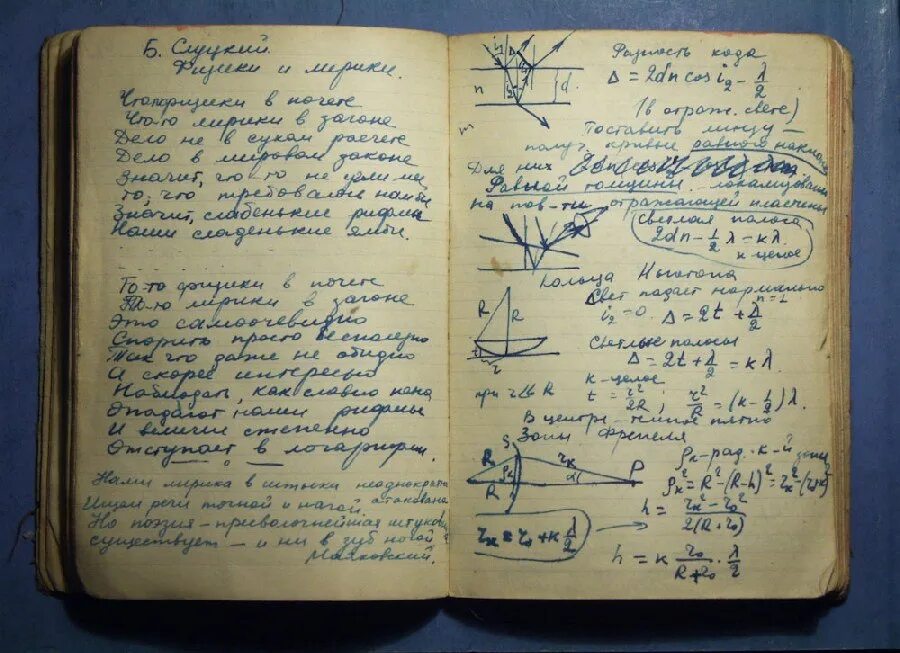 Б. Слуцкий.
Физики и лирики.
Что-то физики в почете
Что-то лирики в загоне
Дело не в сухом расчете
Дело в мировом законе
Значит, что-то не
то, что требовалось нам бы
Значит, слабенькие
Наши сладенькие ямбы.
То-то физики в почете
То-то лирики в загоне
Это самоочевидно
Спорить просто бесполезно
Так что даже не обидно
А скорее интересно
Наблюдать, как словно пена
Опадают наши рифмы
И величие степенно
Отступает в логарифмы.
Нами лирика в штыки неоднократно атакована
Ищем речи точной и нагой
Но поэзия - пресволочнейшая штуковина
существует - и ни в зуб ногой
Маяковский.
Разность хода
Δ = 2dn cos i₂ - λ/2
n
d
(в отраж. свете)
Поставить линзу -
получ. кривые равного наклона
Для них
Равной толщины локализованы
на пов-ти отражающей пластины
светлая полоса
2dn - 1/2 λ = kλ
k-целое
Кольца Ньютона
Свет падает нормально
i₂ = 0. Δ = 2t + λ/2 n=1
R R
Светлые полосы
Δ = 2t + λ/2 = kλ
r
k-целое
при r ≪ R t = r²/2R ; r²/R = (k - 1/2) λ.
В центре - темное пятно
Зоны Френеля
S R ρk rk P
R
ρk - рад. k-й зоны
ρk² = R² - (R-h)² = rk² -
h = rk² - r₀² / 2(R + r₀)
rk = r₀ + k λ/2
h = k r₀/(R + r₀) · λ/2